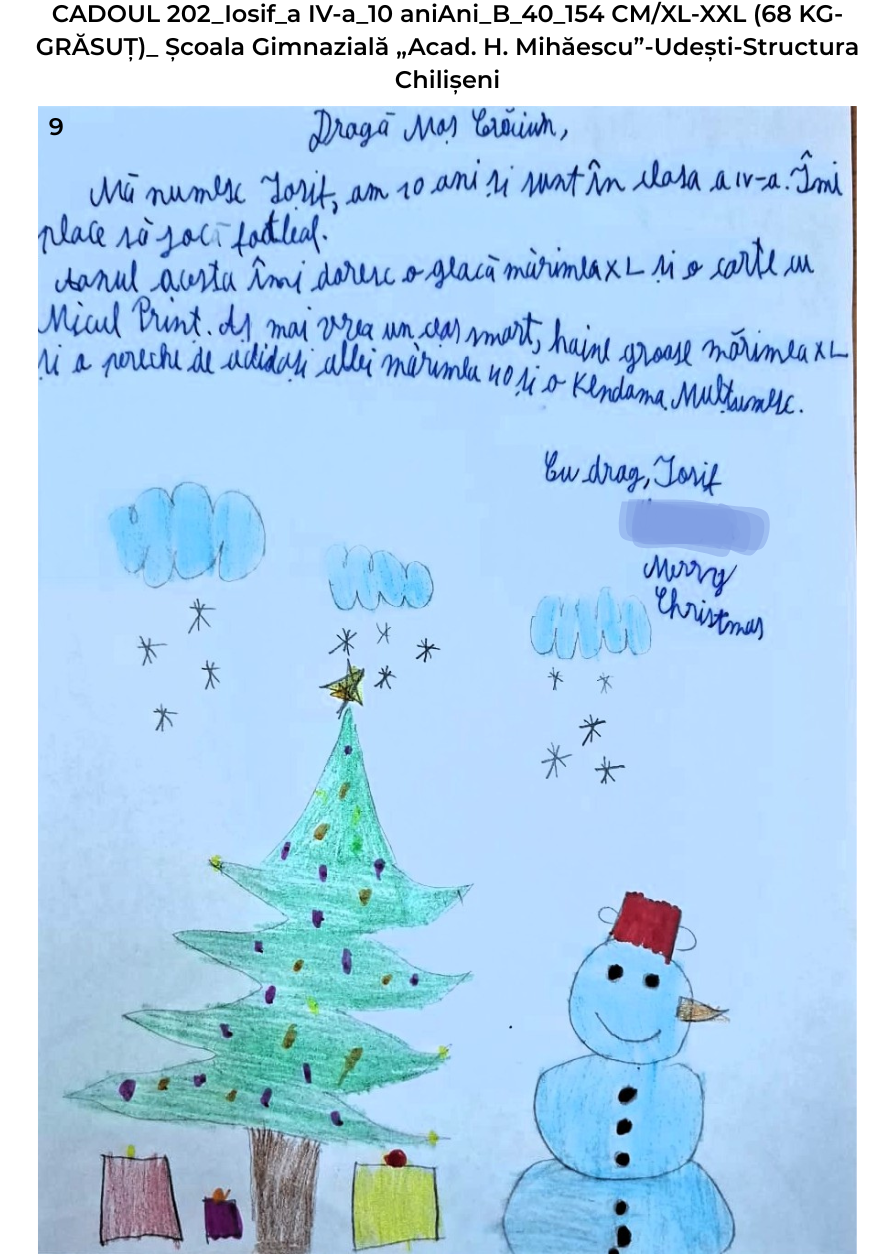 CADOUL 202_Iosif_a IV-a_10 aniAni_B_40_154 CM/XL-XXL (68 KG-
GRĂSUȚ)_ Școala Gimnazială „Acad. H. Mihăescu”-Udești-Structura
Chilișeni
9
Dragă Moș Crăciun,
Mă numesc Iosif, am 10 ani și sunt în clasa a IV-a. Îmi
place să joci
Aanul acesta îmi doresc o geacă mărimea XL și o carte cu
Micul Print. Aș mai vrea un ceas smart, haine groase mărimea XL
și a pereche de adidași albi mărimea 40 și o Kendama. Multsumesc.
Cu drag, Iosif
Merry
Christmas